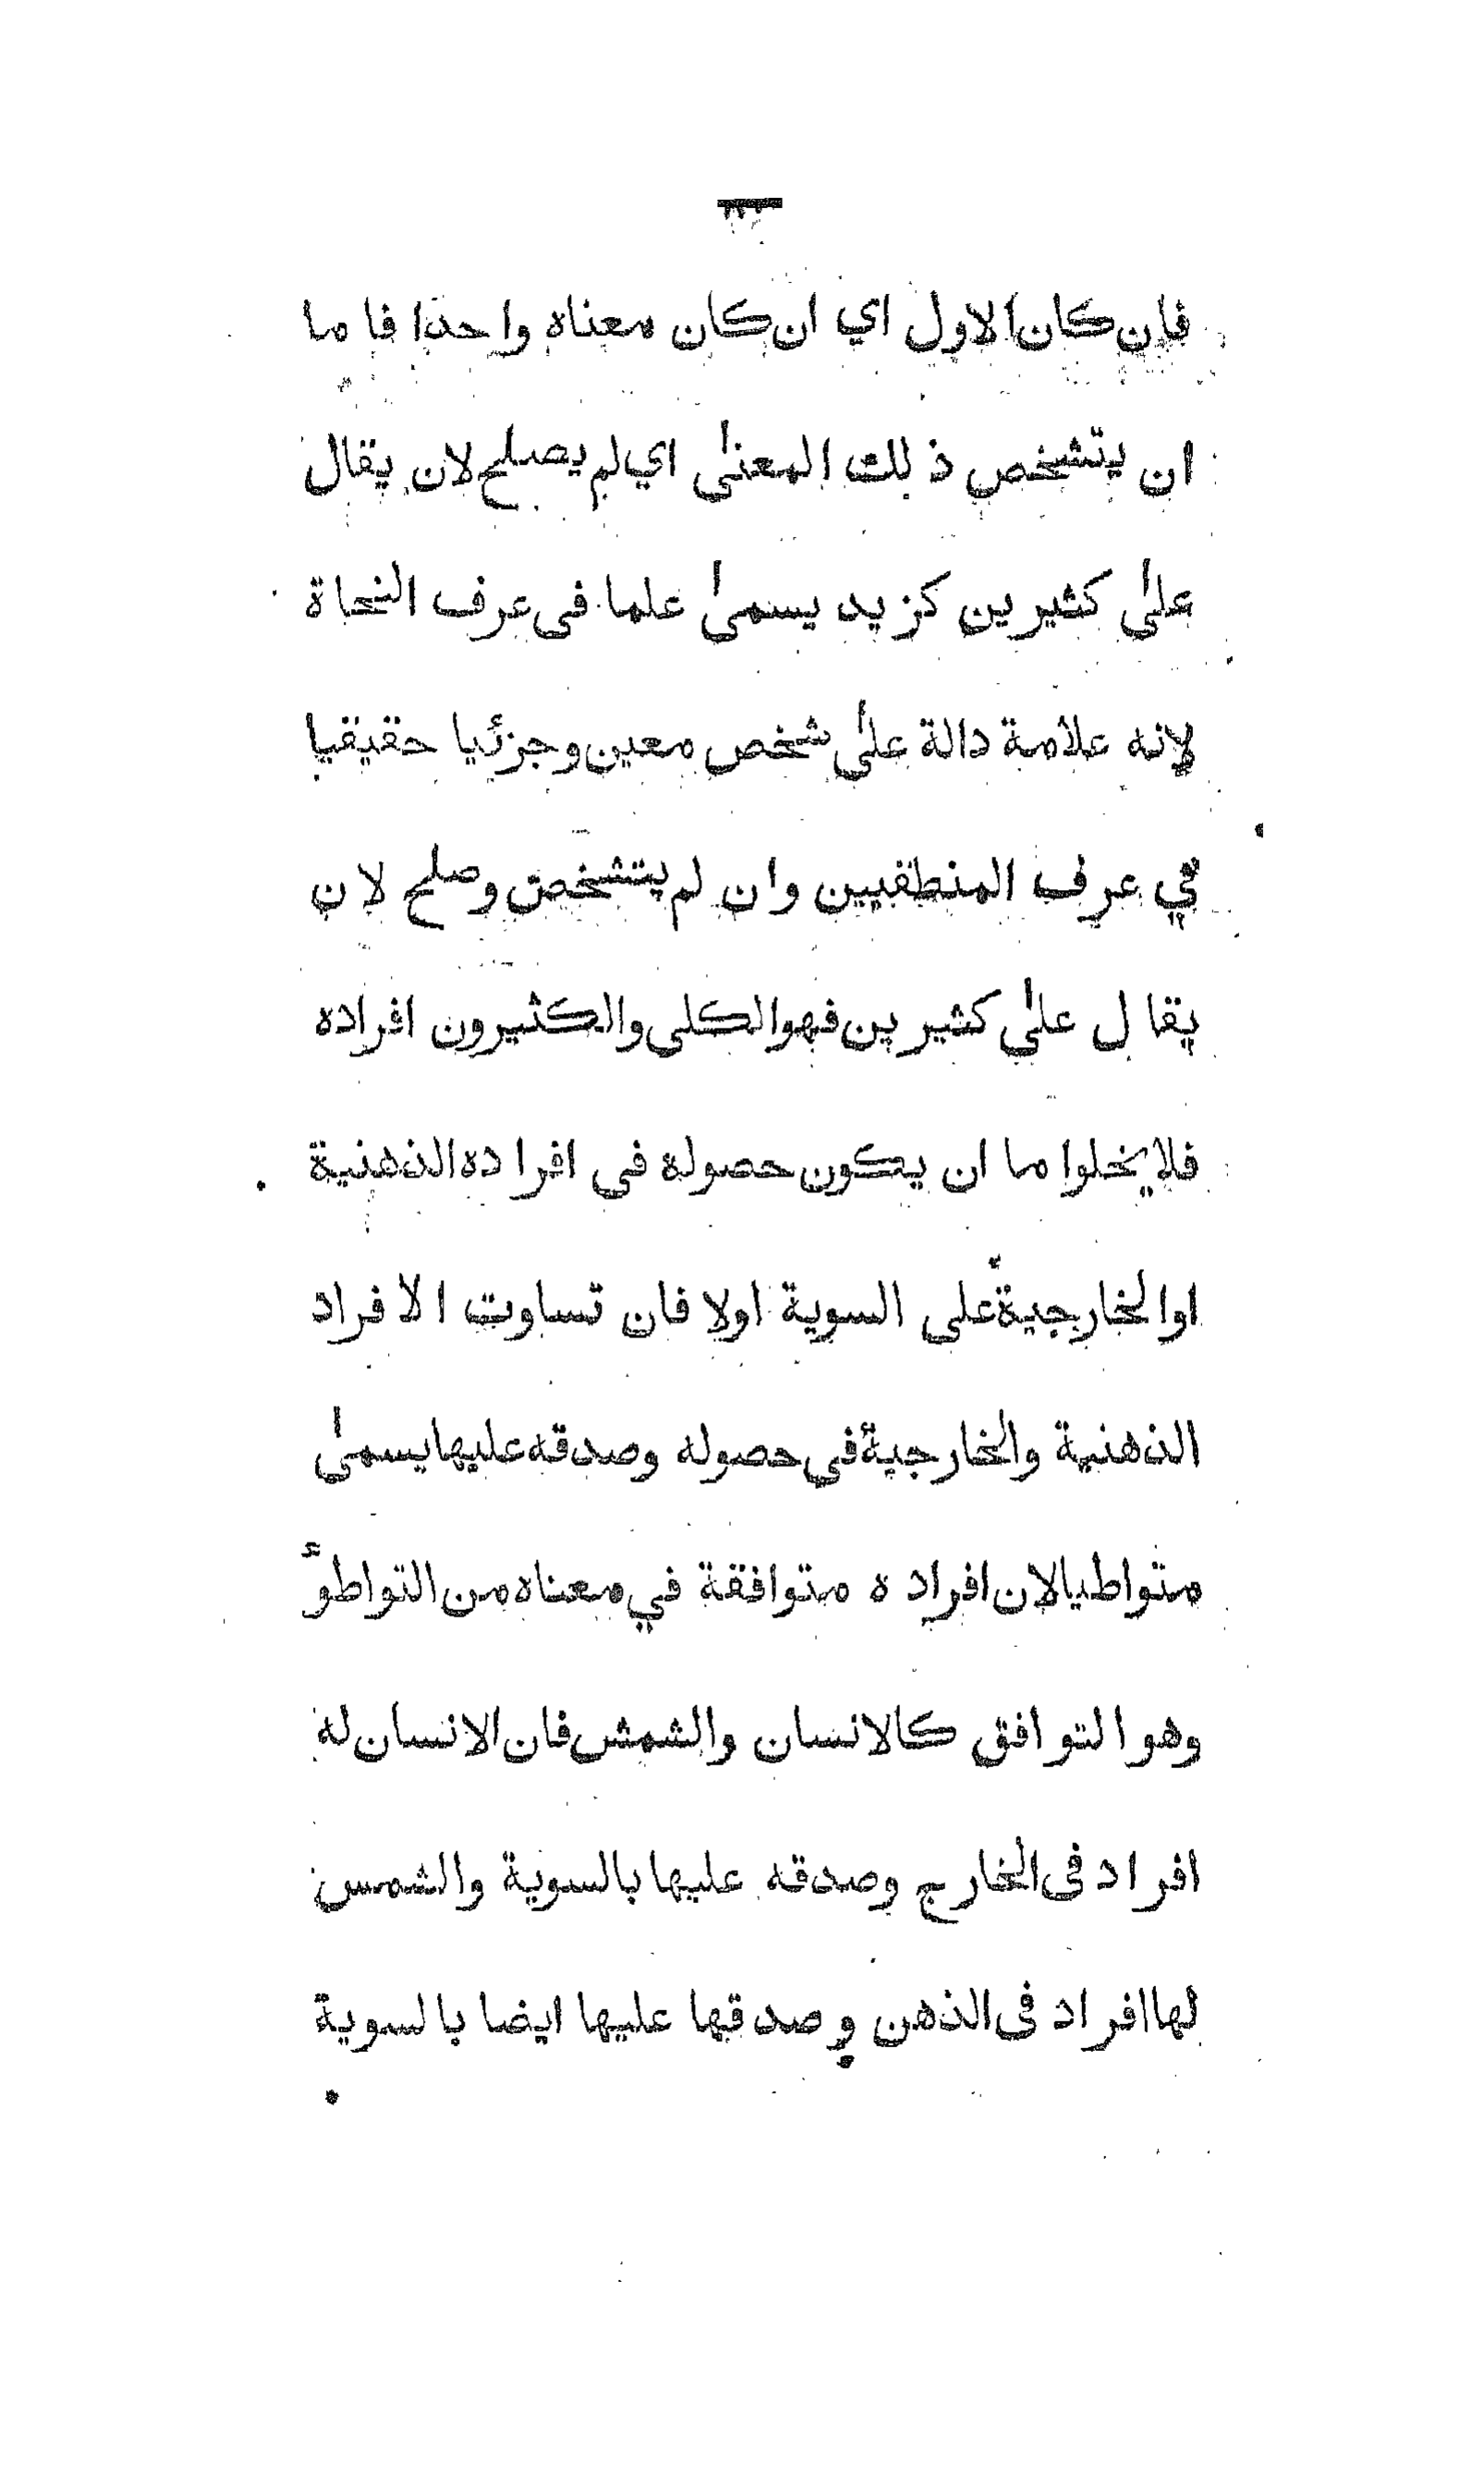 فان كان الاول اي ان كان معناه واحدا فاما
ان يتشخص ذلك المعنى اي لم يصلح لان يقال
على كثيرين كزيد يسمى علما فى عرف النحاة
لانه علامة دالة على شخص معين وجزئيا حقيقيا
في عرف المنطقيين وان لم يتشخص وصلح لان
يقال على كثيرين فهو الكلى والكثيرون افراده
فلا يخلوا ما ان يكون حصوله في افراده الذهنية
او الخارجية على السوية اولا فان تساوت الافراد
الذهنية والخارجية في حصوله وصدقه عليها يسمى
متواطيا لان افراده متوافقة في معناه من التواطؤ
وهو التوافق كالانسان والشمش فان الانسان له
افراد فى الخارج وصدقه عليها بالسوية والشمس
لها افراد فى الذهن وصدقها عليها ايضا بالسوية